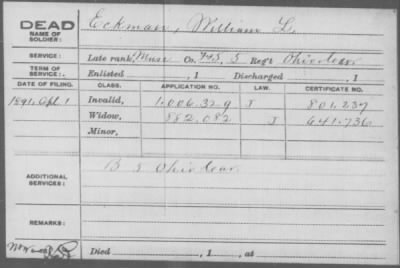 DEAD Eckman, William L.
NAME OF SOLDIER:
SERVICE: Late rank, Musc Co. F&S, 5 Regt Ohio Cav
TERM OF SERVICE: Enlisted , 1 Discharged , 1
DATE OF FILING. CLASS. APPLICATION NO. LAW. CERTIFICATE NO.
1891, Apl. 1 Invalid, 1.006.329 J 801.237
Widow, 882.082 J 641.736
Minor,
ADDITIONAL SERVICES: B 5 Ohio Cav.
REMARKS:
Died , 1 , at